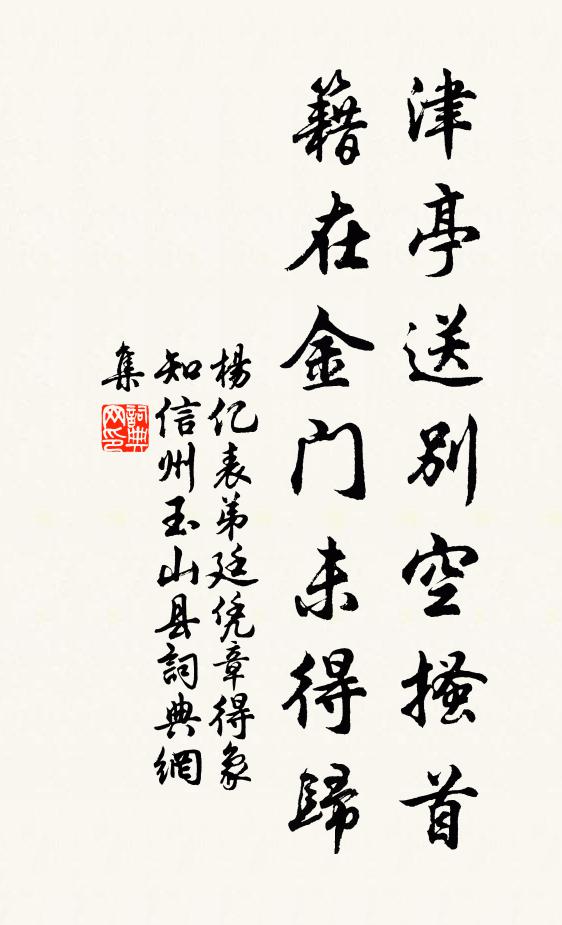 津亭送别空搔首
籍在金门未得歸
楊亿表弟廷凭章得象
知信州玉山县詞典網
集
詞典
网印